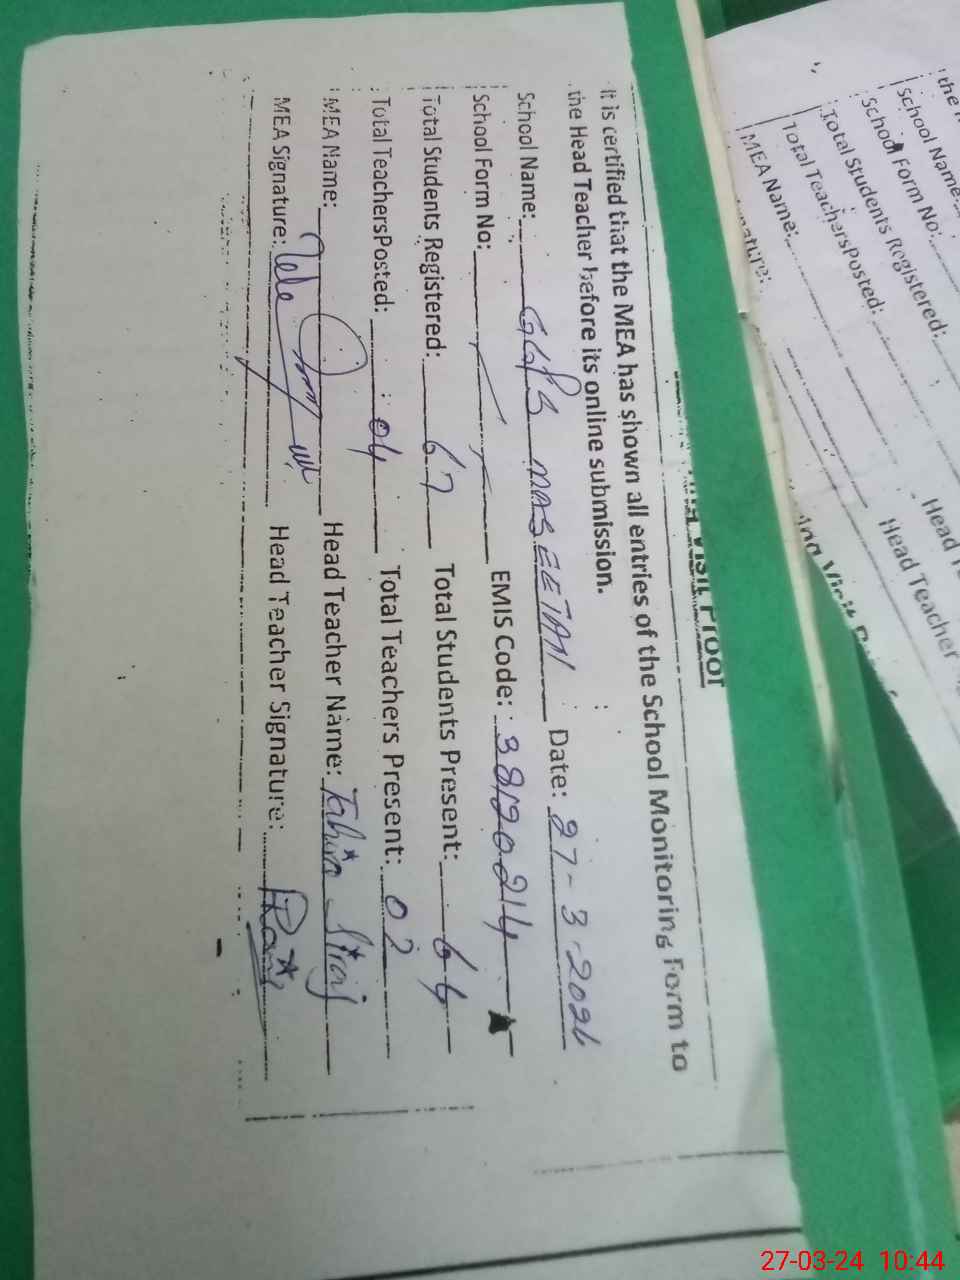 Visit Proof
It is certified that the MEA has shown all entries of the School Monitoring Form to
the Head Teacher before its online submission.
School Name: GGPS NASEETAN Date: 27-3-2024
School Form No: EMIS Code: 38120214
Total Students Registered: 67 Total Students Present: 64
Total TeachersPosted: 04 Total Teachers Present: 02
MEA Name: Head Teacher Name: Tahira Siraj
MEA Signature: Head Teacher Signature:
the
School Name:
School Form No:
Total Students Registered:
Total TeachersPosted: Head
MEA Name: Head Teacher
nature:
27-03-24 10:44